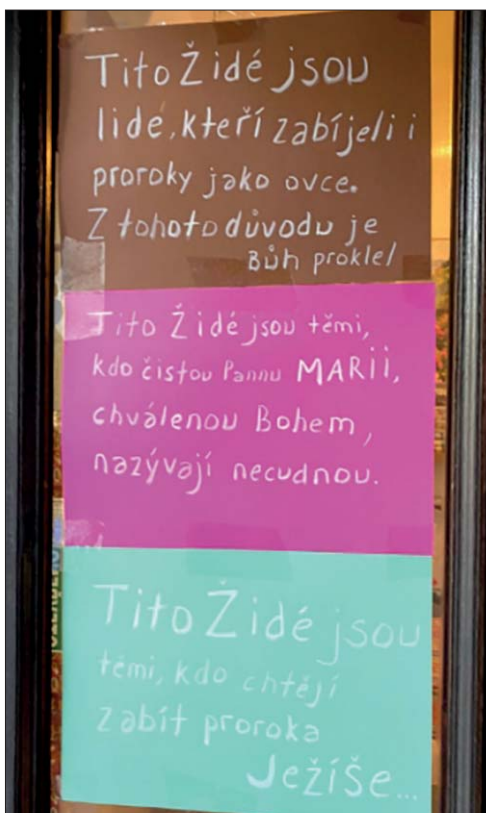 Tito Židé jsou
lide, kteří zabíjeli i
proroky jako ovce.
Z tohoto důvodu je
Bůhproklel
Tito Židé jsou těmi,
kdo čistou Pannu MARII,
chválenou Bohem,
nazývají necudnou.
Tito Židé jsou
těmi, kdo chtějí
zabít proroka
Ježíše...